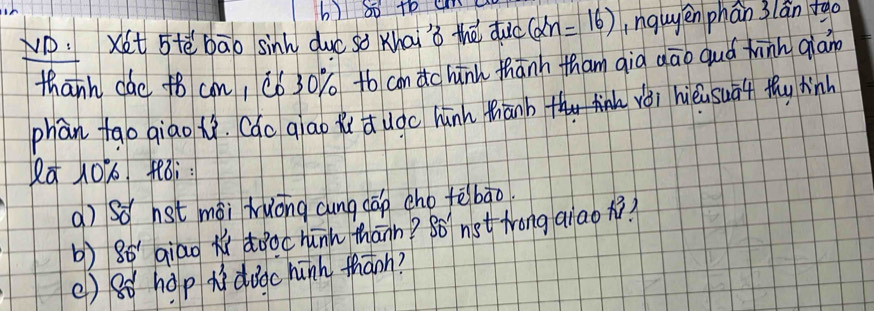 b) Số tb con
VD: Xét 5 tế bào sinh dục sơ khai ở thể đực (2n = 16), nguyên phân 3 lần tạo
thành các tb con, có 30% tb con đc hình thành tham gia vào quá trình giảm
phân tạo giao tử. Các giao tử được hình thành với hiệu suất thụ tinh
là 10%. Hỏi:
a) Số nst môi trường cung cấp cho tế bào.
b) Số giao tử được hình thành? Số nst trong giao tử?
c) Số hợp tử được hình thành?